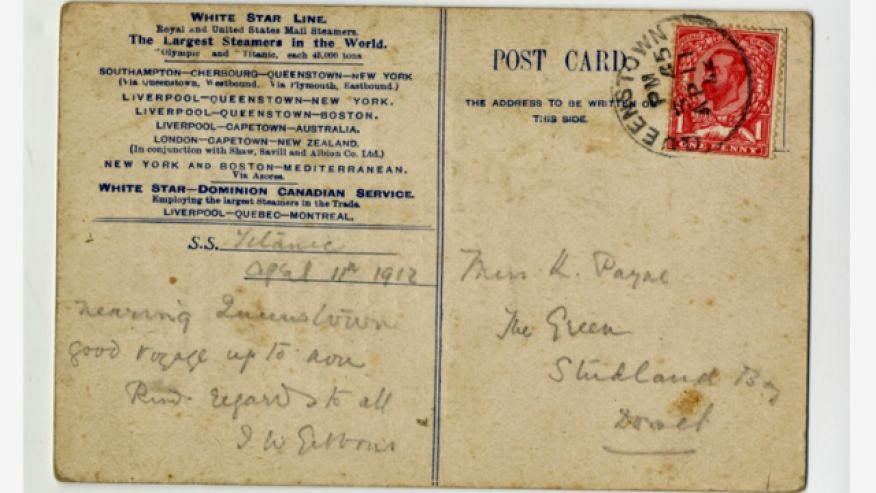 WHITE STAR LINE.
Royal and United States Mail Steamers.
The Largest Steamers in the World.
"Olympic" and "Titanic, each 45,000 tons
SOUTHAMPTON—CHERBOURG—QUEENSTOWN—NEW YORK
(Via Queenstown, Westbound. Via Plymouth, Eastbound.)
LIVERPOOL—QUEENSTOWN—NEW YORK.
LIVERPOOL—QUEENSTOWN—BOSTON.
LIVERPOOL—CAPETOWN—AUSTRALIA.
LONDON—CAPETOWN—NEW ZEALAND.
(In conjunction with Shaw, Savill and Albion Co. Ltd.)
NEW YORK AND BOSTON—MEDITERRANEAN.
Via Azores.
WHITE STAR—DOMINION CANADIAN SERVICE.
Employing the largest Steamers in the Trade.
LIVERPOOL—QUEBEC—MONTREAL.
S.S. Titanic
April 11th 1912
nearing Queenstown
good voyage up to now
Kind regards to all
J W Gibbons
POST CARD
THE ADDRESS TO BE WRITTEN ON
THIS SIDE.
QUEENSTOWN
PM
45
AP 11
1
ONE PENNY
1
Miss K. Payne
The Green
Studland Bay
Dorset